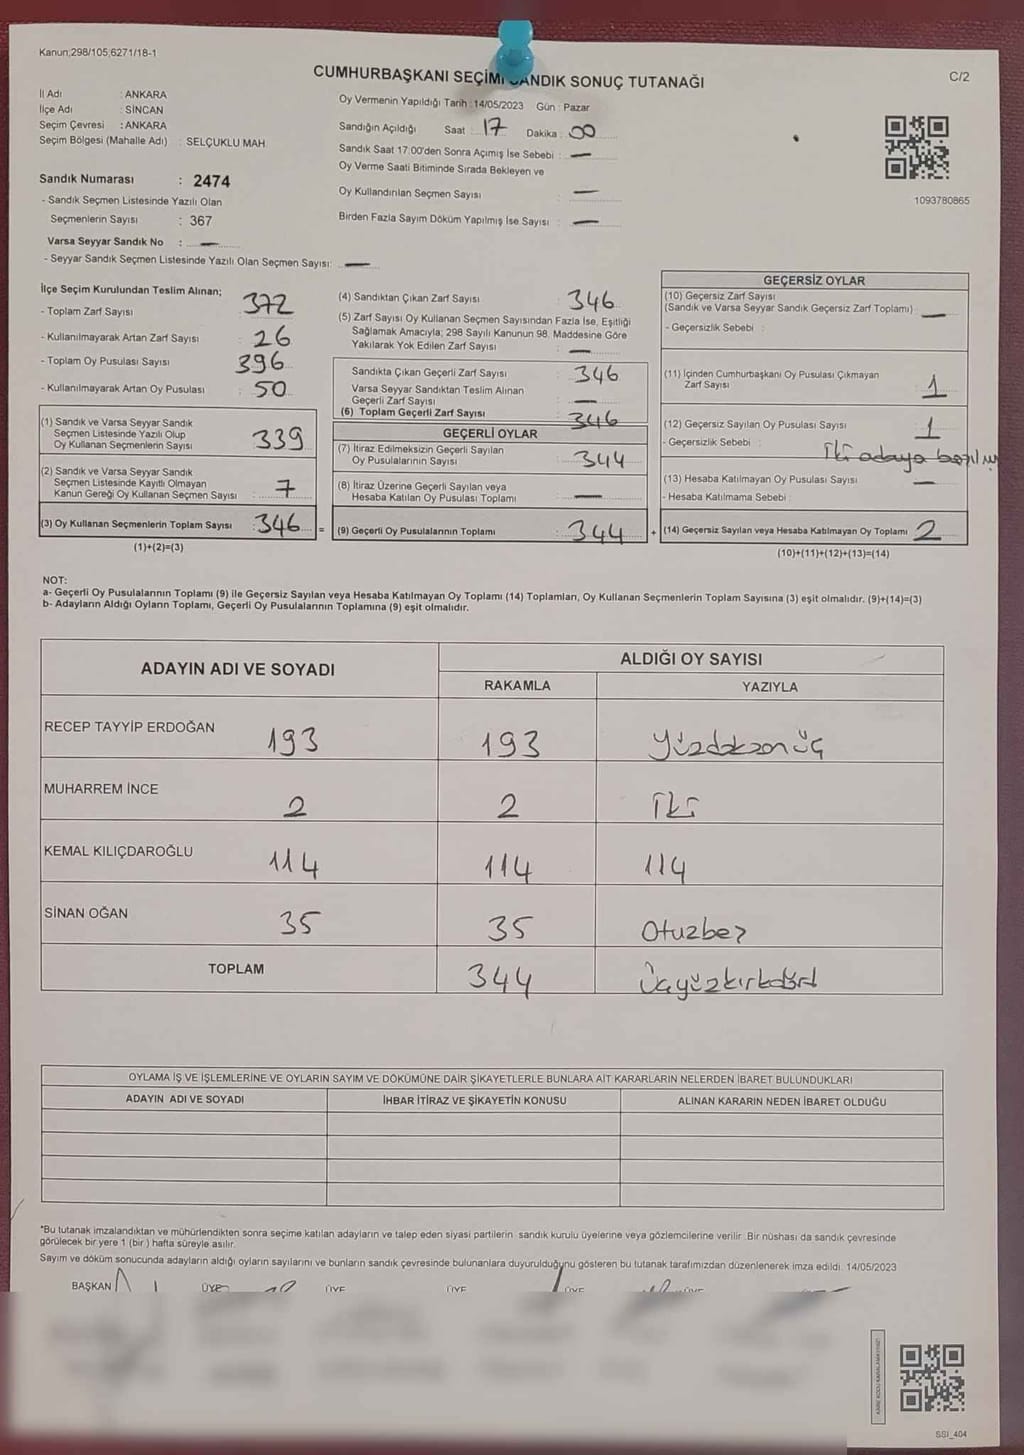 Kanun;298/105;6271/18-1
CUMHURBAŞKANI SEÇİMİ SANDIK SONUÇ TUTANAĞI
C/2
İl Adı : ANKARA
İlçe Adı : SİNCAN
Seçim Çevresi : ANKARA
Seçim Bölgesi (Mahalle Adı) : SELÇUKLU MAH
Sandık Numarası : 2474
- Sandık Seçmen Listesinde Yazılı Olan
Seçmenlerin Sayısı : 367
Varsa Seyyar Sandık No : —
- Seyyar Sandık Seçmen Listesinde Yazılı Olan Seçmen Sayısı: —
Oy Vermenin Yapıldığı Tarih : 14/05/2023 Gün : Pazar
Sandığın Açıldığı Saat : 17 Dakika : 00
Sandık Saat 17:00'den Sonra Açımış İse Sebebi : —
Oy Verme Saati Bitiminde Sırada Bekleyen ve
Oy Kullandırılan Seçmen Sayısı : —
Birden Fazla Sayım Döküm Yapılmış İse Sayısı : —
1093780865
İlçe Seçim Kurulundan Teslim Alınan;
- Toplam Zarf Sayısı : 372
- Kullanılmayarak Artan Zarf Sayısı : 26
- Toplam Oy Pusulası Sayısı : 396
- Kullanılmayarak Artan Oy Pusulası : 50
(1) Sandık ve Varsa Seyyar Sandık
Seçmen Listesinde Yazılı Olup
Oy Kullanan Seçmenlerin Sayısı : 339
(2) Sandık ve Varsa Seyyar Sandık
Seçmen Listesinde Kayıtlı Olmayan
Kanun Gereği Oy Kullanan Seçmen Sayısı : 7
(3) Oy Kullanan Seçmenlerin Toplam Sayısı : 346 =
(1)+(2)=(3)
(4) Sandıktan Çıkan Zarf Sayısı : 346
(5) Zarf Sayısı Oy Kullanan Seçmen Sayısından Fazla İse, Eşitliği
Sağlamak Amacıyla; 298 Sayılı Kanunun 98. Maddesine Göre
Yakılarak Yok Edilen Zarf Sayısı : —
Sandıkta Çıkan Geçerli Zarf Sayısı : 346
Varsa Seyyar Sandıktan Teslim Alınan
Geçerli Zarf Sayısı : —
(6) Toplam Geçerli Zarf Sayısı : 346
GEÇERLİ OYLAR
(7) İtiraz Edilmeksizin Geçerli Sayılan
Oy Pusulalarının Sayısı : 344
(8) İtiraz Üzerine Geçerli Sayılan veya
Hesaba Katılan Oy Pusulası Toplamı : —
(9) Geçerli Oy Pusulalarının Toplamı : 344 +
GEÇERSİZ OYLAR
(10) Geçersiz Zarf Sayısı
(Sandık ve Varsa Seyyar Sandık Geçersiz Zarf Toplamı) : —
- Geçersizlik Sebebi :
(11) İçinden Cumhurbaşkanı Oy Pusulası Çıkmayan
Zarf Sayısı : 1
(12) Geçersiz Sayılan Oy Pusulası Sayısı : 1
- Geçersizlik Sebebi : İki adaya basılmış
(13) Hesaba Katılmayan Oy Pusulası Sayısı : —
- Hesaba Katılmama Sebebi :
(14) Geçersiz Sayılan veya Hesaba Katılmayan Oy Toplamı : 2
(10)+(11)+(12)+(13)=(14)
NOT:
a- Geçerli Oy Pusulalarının Toplamı (9) ile Geçersiz Sayılan veya Hesaba Katılmayan Oy Toplamı (14) Toplamları, Oy Kullanan Seçmenlerin Toplam Sayısına (3) eşit olmalıdır. (9)+(14)=(3)
b- Adayların Aldığı Oyların Toplamı, Geçerli Oy Pusulalarının Toplamına (9) eşit olmalıdır.
ADAYIN ADI VE SOYADI
ALDIĞI OY SAYISI
RAKAMLA YAZIYLA
RECEP TAYYİP ERDOĞAN 193 193 Yüzdoksonüç
MUHARREM İNCE 2 2 İki
KEMAL KILIÇDAROĞLU 114 114 114
SİNAN OĞAN 35 35 Otuzbeş
TOPLAM 344 Üçyüzkırkdört
OYLAMA İŞ VE İŞLEMLERİNE VE OYLARIN SAYIM VE DÖKÜMÜNE DAİR ŞİKAYETLERLE BUNLARA AİT KARARLARIN NELERDEN İBARET BULUNDUKLARI
ADAYIN ADI VE SOYADI İHBAR İTİRAZ VE ŞİKAYETİN KONUSU ALINAN KARARIN NEDEN İBARET OLDUĞU
*Bu tutanak imzalandıktan ve mühürlendikten sonra seçime katılan adayların ve talep eden siyasi partilerin sandık kurulu üyelerine veya gözlemcilerine verilir. Bir nüshası da sandık çevresinde
görülecek bir yere 1 (bir ) hafta süreyle asılır.
Sayım ve döküm sonucunda adayların aldığı oyların sayılarını ve bunların sandık çevresinde bulunanlara duyurulduğunu gösteren bu tutanak tarafımızdan düzenlenerek imza edildi. 14/05/2023
BAŞKAN ÜYE ÜYE ÜYE ÜYE ÜYE
SSİ_404